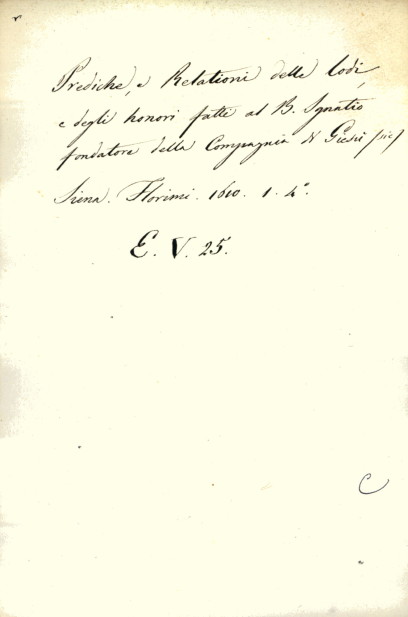 Prediche, e Relationi delle lodi,
e degli honori fatte al B. Ignatio
fondatore della Compagnia di Giesù (sic)
Siena. Florimi. 1610. 1. 4°.
E. V. 25.
C